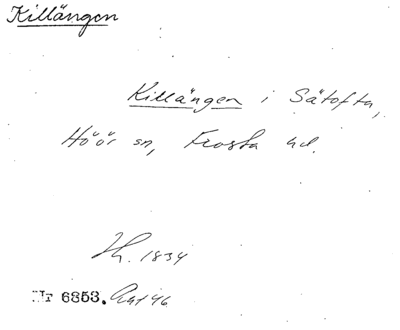 Killängen
Killängen i Sätofta,
Höör sn, Frosta hd.
1834
Nr 6853.